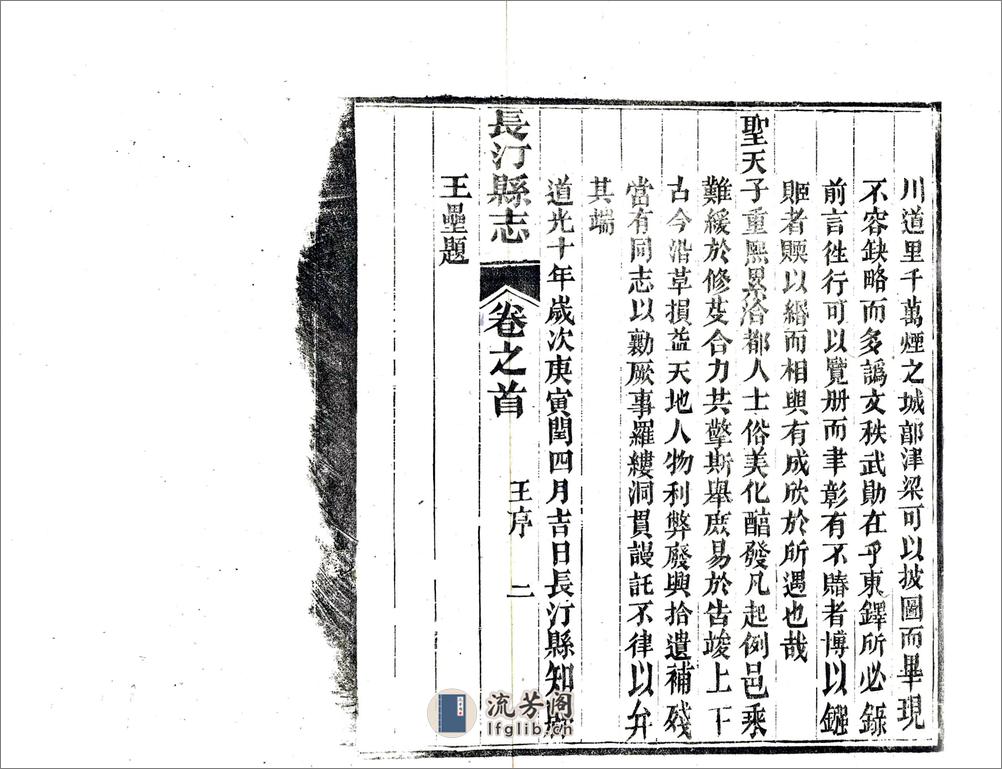 川道里千萬煙之城部津梁可以披圖而畢現
不容缺略而多譌文秩武勛在乎東鐸所必錄
前言徃行可以覽册而聿彰有不賰者博以
賑者賏以緡而相與有成欣於所遇也哉
聖天子重熙累洽都人士俗美化醕發凡起例邑乘
難緩於修芟合力共擎斯舉庶易於告竣上下
古今沿革損益天地人物利弊廢興拾遺補殘
當有同志以勷厥事羅縷洞貫謾託不律以弁
其端
道光十年歲次庚寅閏四月吉日長汀縣知縣
長汀縣志
卷之首
王序
二
王壘題
流芳阁
lfglib.cn